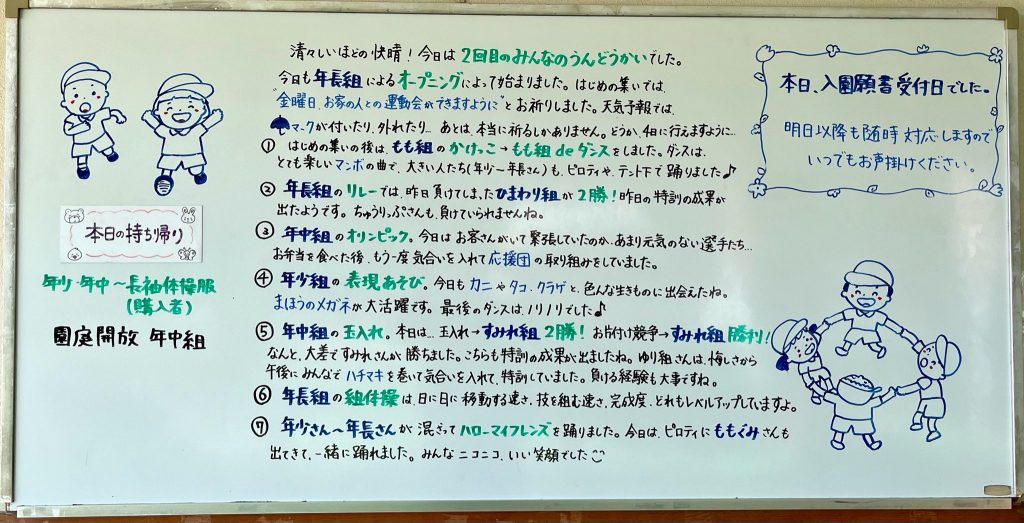 清々しいほどの快晴！今日は2回目のみんなのうんどうかいでした。
今日も年長組によるオープニングによって始まりました。はじめの集いでは、
"金曜日、お家の人との運動会ができますように"とお祈りしました。天気予報では、
マークが付いたり、外れたり… あとは、本当に祈るしかありません。どうか、4日に行えますように…
① はじめの集いの後は、もも組のかけっこ→もも組deダンスをしました。ダンスは、
とても楽しいマンボの曲で、大きい人たち(年少〜年長さん)も、ピロティや、テント下で踊りました♪
② 年長組のリレーでは、昨日負けてしまったひまわり組が2勝！昨日の特訓の成果が
出たようです。ちゅうりっぷさんも、負けていられませんね。
③ 年中組のオリンピック。今日はお客さんがいて緊張していたのか、あまり元気のない選手たち…
お弁当を食べた後、もう一度気合いを入れて応援団の取り組みをしていました。
④ 年少組の表現あそび。今日もカニやタコ、クラゲと、色んな生きものに出会えたね。
まほうのメガネが大活躍です。最後のダンスはノリノリでした♪
⑤ 年中組の玉入れ。本日は…玉入れ→すみれ組2勝！ お片付け競争→すみれ組勝利！
なんと、大差ですみれさんが勝ちました。こちらも特訓の成果が出ましたね。ゆり組さんは、悔しさから
午後にみんなでハチマキを巻いて気合いを入れて、特訓していました。負ける経験も大事ですね。
⑥ 年長組の組体操は、日に日に移動する速さ、技を組む速さ、完成度、どれもレベルアップしていますよ。
⑦ 年少さん〜年長さんが、混ざってハローマイフレンズを踊りました。今日は、ピロティにももぐみさんも
出てきて、一緒に踊れました。みんなニコニコ、いい笑顔でした
本日の持ち帰り
年少・年中〜長袖体操服
(購入者)
園庭開放 年中組
本日、入園願書受付日でした。
明日以降も随時対応しますので
いつでもお声掛けください。